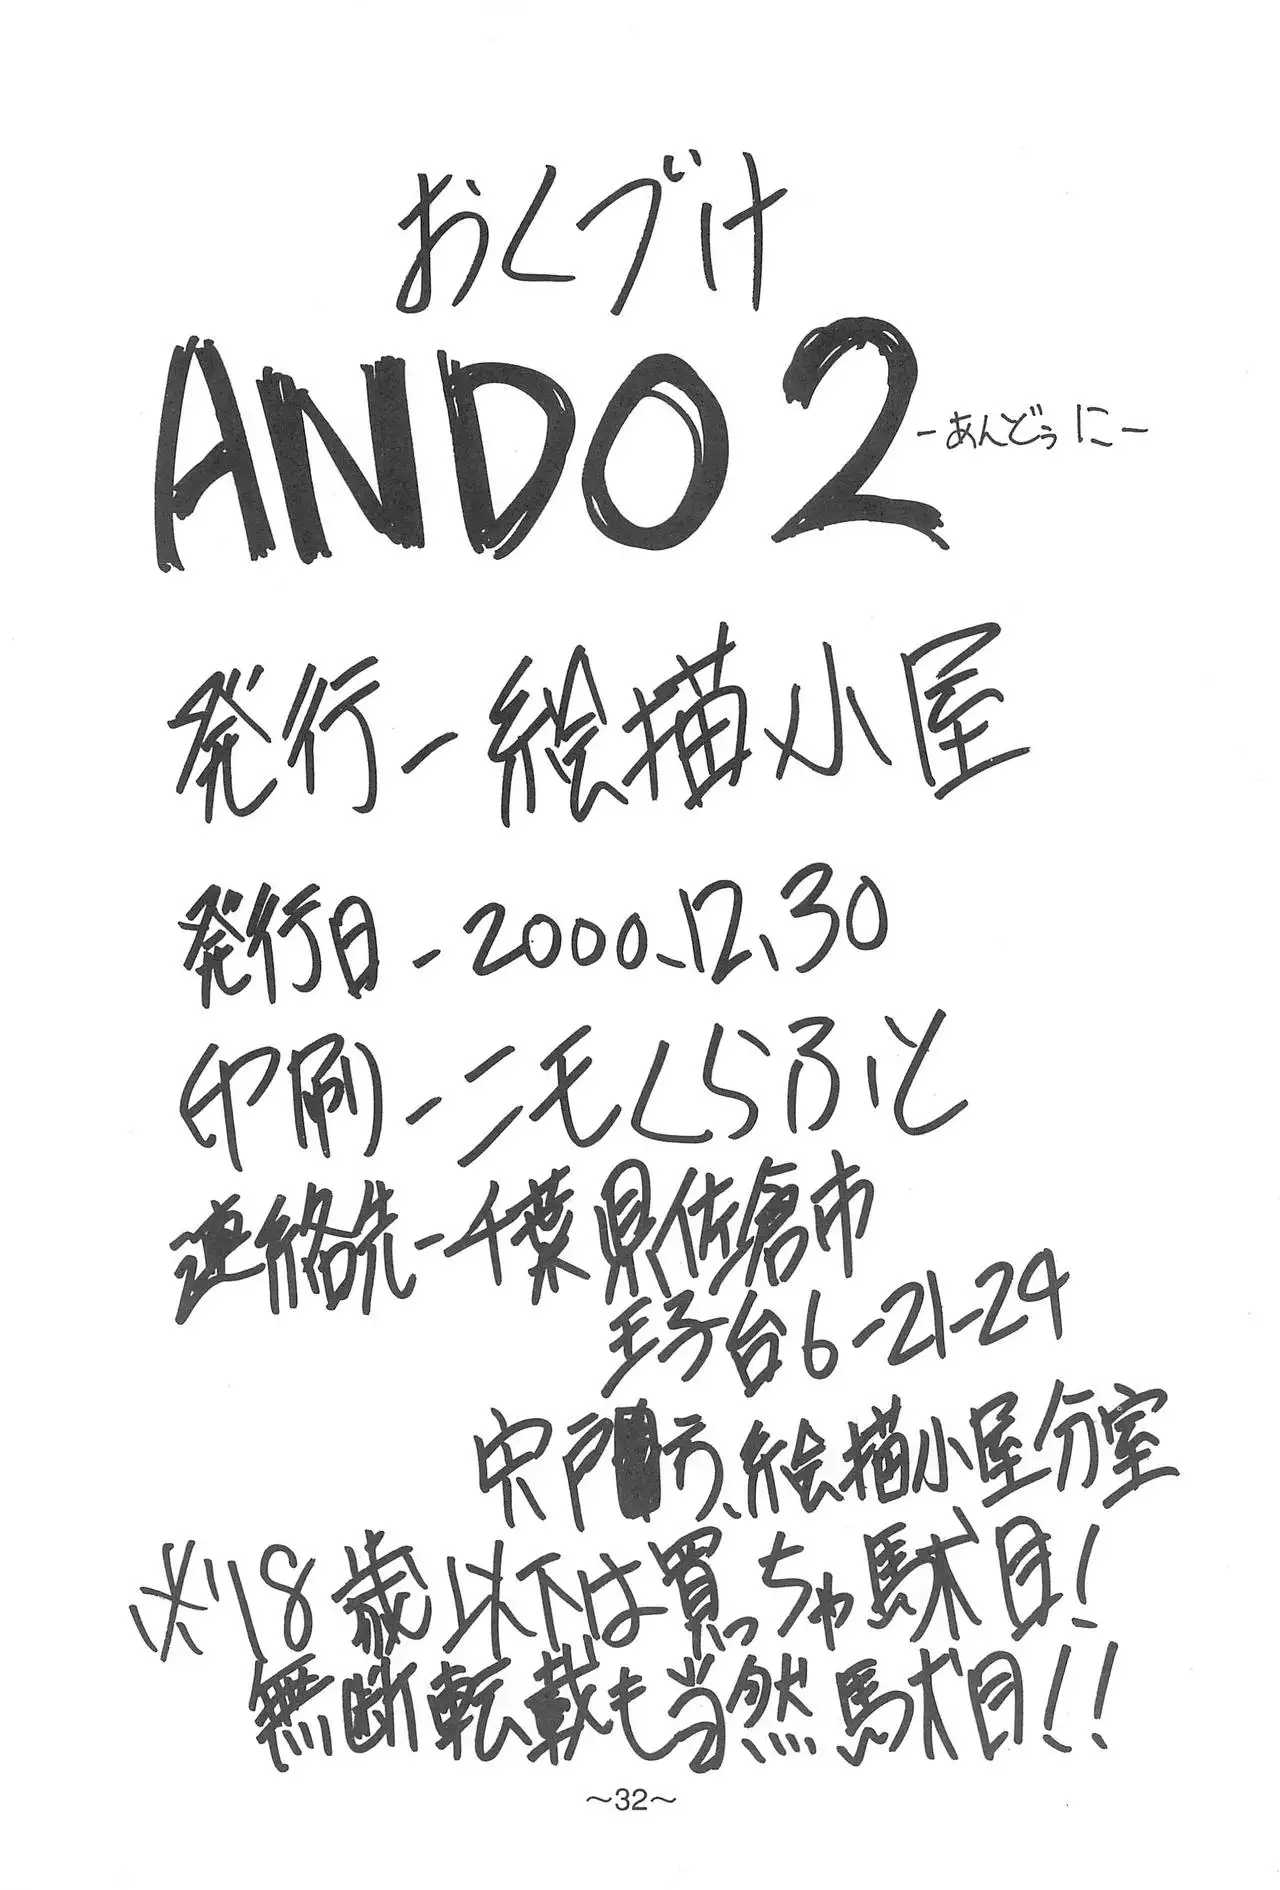 おくづけ
ANDO2 -あんどぅに-
発行-絵描小屋
発行日-2000.12.30
印刷-ニモくらふと
連絡先-千葉県佐倉市
王子台6-21-24
宍戸方、絵描小屋分室
※18歳以下は買っちゃ駄目!
無断転載も当然駄目!!
~32~